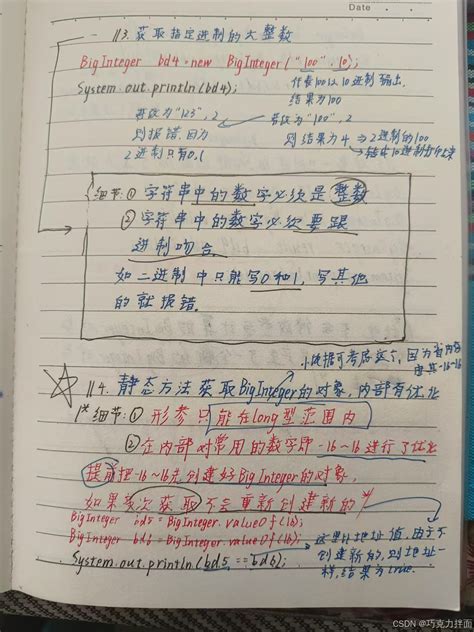 Date
//3.获取指定进制的大整数
BigInteger bd4=new BigInteger("100",10);
System.out.println(bd4);
代表100以10进制输出,
结果为100
若改为"123",2
则报错.因为
2进制只有0,1
若改为"100",2
则结果为4→2进制的100
转成10进制
细节:①字符串中的数字必须是整数
②字符串中的数字必须要跟
进制吻合.
如二进制中只能写0和1,写其他
的就报错.
小数据可考虑这个,因为
-16~16
//4.静态方法获取BigInteger的对象,内部有优化
/*细节:①形参只能在long型范围内
②在内部对常用的数字即-16~16进行了优化
提前把-16~16先创建好BigInteger的对象,
如果多次获取不会重新创建新的*/
BigInteger bd5=BigInteger.valueOf(16);
BigInteger bd6=BigInteger.valueOf(16);
System.out.println(bd5==bd6);
这里比地址值,由于不
创建新的,则地址一
样,结果为true.
CSDN @巧克力拌面